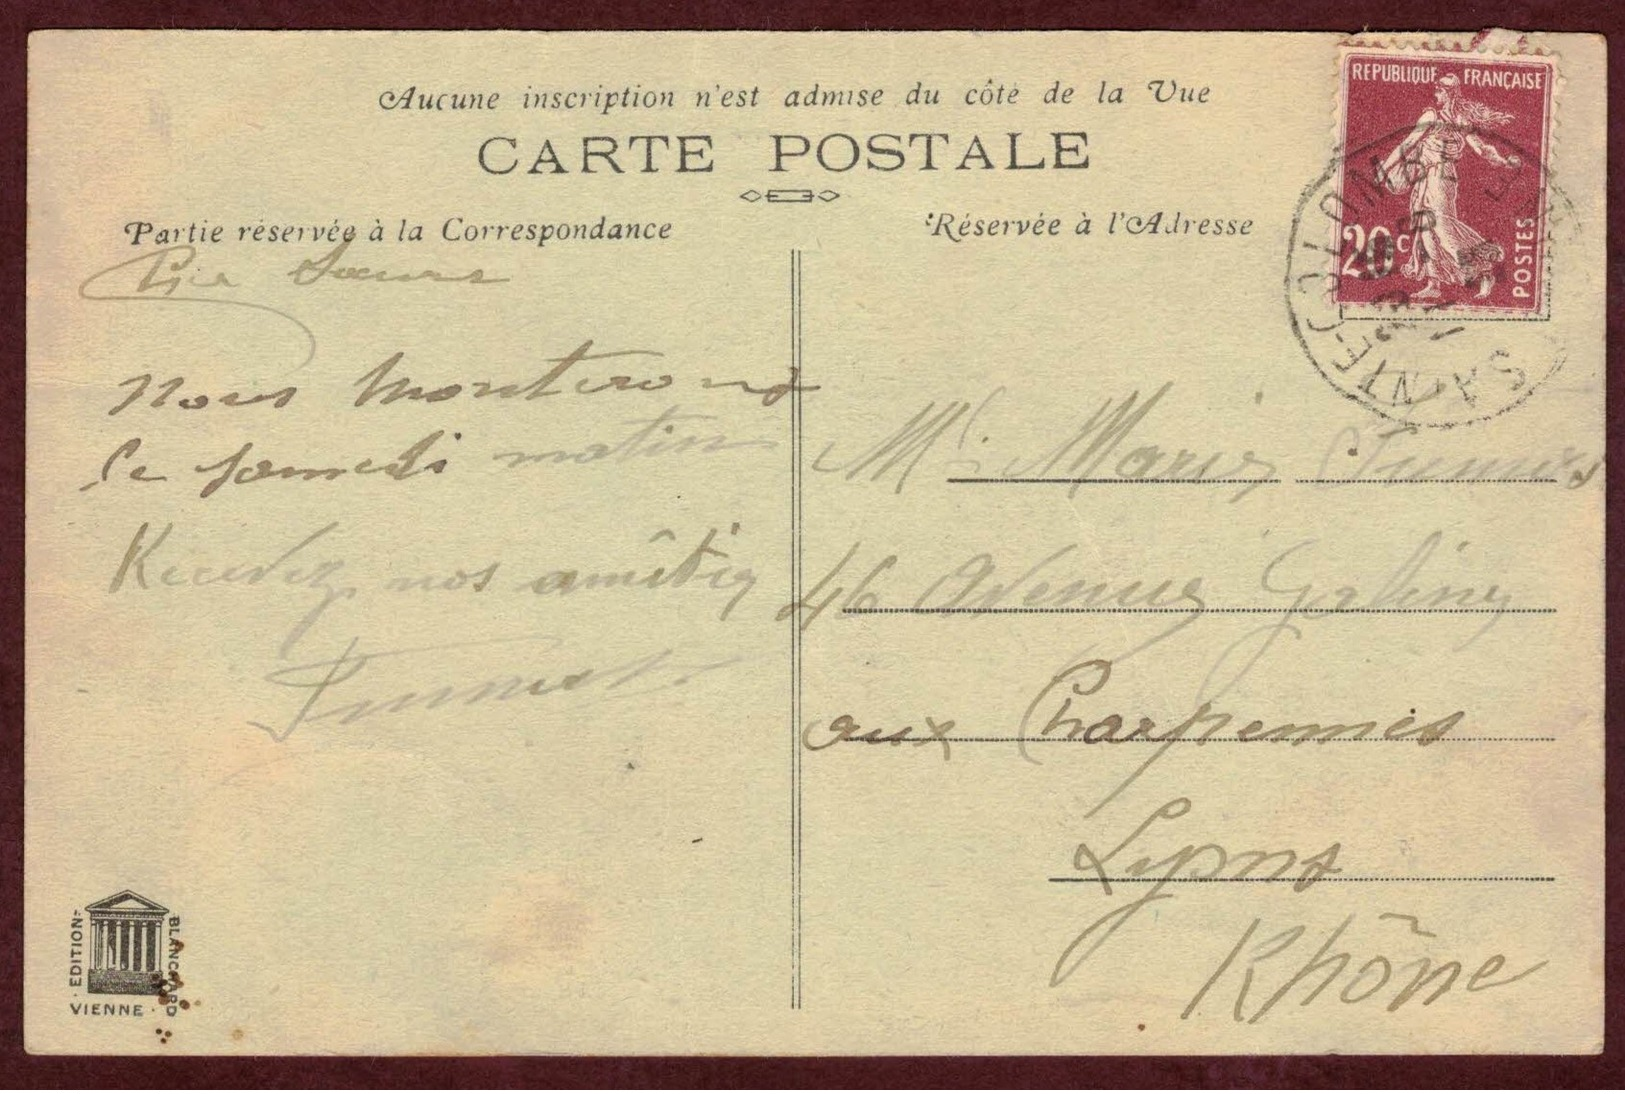 Aucune inscription n'est admise du côté de la Vue
CARTE POSTALE
Partie réservée à la Correspondance
Réservée à l'Adresse
REPUBLIQUE FRANÇAISE
20c
POSTES
SAINTE-COLOMBE
Sœurs
Nous monterons
le samedi matin
Recevez nos amitiés
Mme Marie
46 Avenue Galiny
aux Charpennes
Lyons
Rhône
EDITION
BLANCHARD
VIENNE